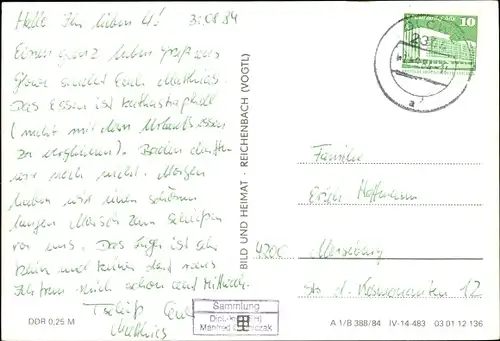 Hallo Ihr lieben 4! 3.08.84
Einen ganz lieben Gruß aus
sendet Euch Matthias.
Das Essen ist katastrophal
(nicht mit dem Urlaubsessen
zu vergleichen). Baden durften
wir noch nicht. Morgen
haben wir einen schönen
langen Marsch zum
vor uns. Das Lager ist sehr
klein und keiner darf raus
schon auf Mittwoch.
Tschüß Euer
Matthias
DDR 0,25 M
BILD UND HEIMAT · REICHENBACH (VOGTL)
10
Familie
Erich Hoffmann
4200 Merseburg
Str. d. Kosmonauten 12
Sammlung
Manfred
A 1/B 388/84 IV-14-483 03 01 12 136